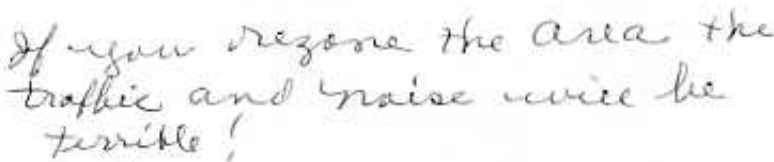 If you rezone the area the
traffic and noise will be
terrible!